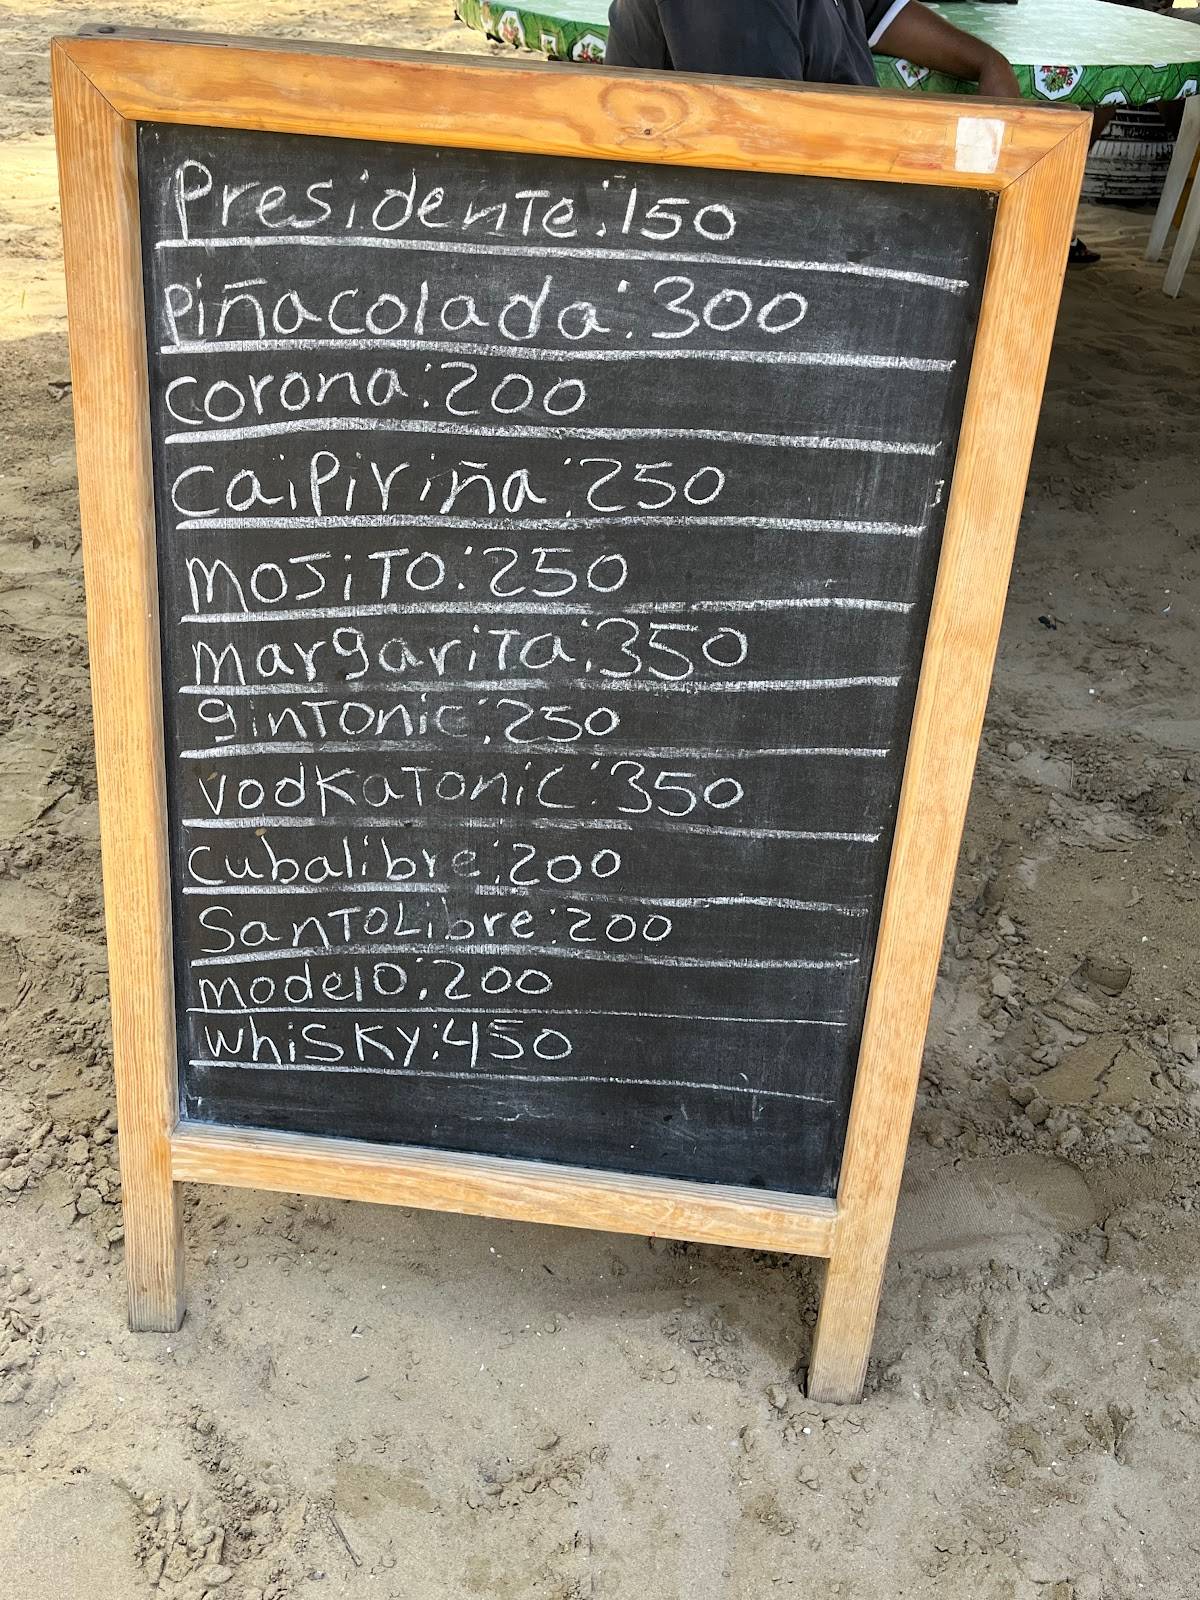 Presidente:150
piñacolada:300
corona:200
caipiriña:250
mojito:250
margarita:350
gintonic:250
vodkatonic:350
cubalibre:200
SantoLibre:200
modelo:200
whisky:450